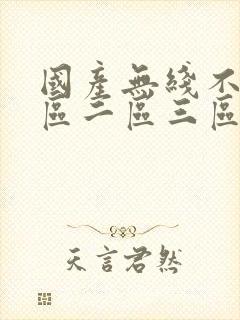 國產無綫不
區二區三區
天言君然